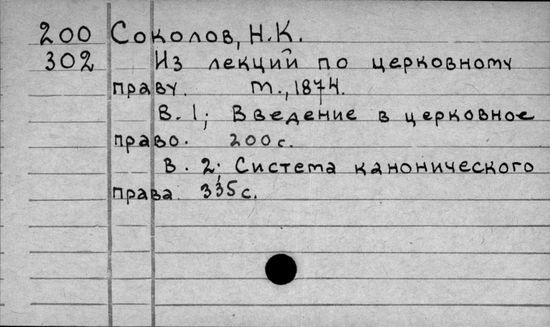 200 Соколов, Н.К.
302 Из лекций по церковному
праву. М., 1874.
В. 1; Введение в церковное
право. 200 с.
В. 2; Система канонического
права. 335 с.